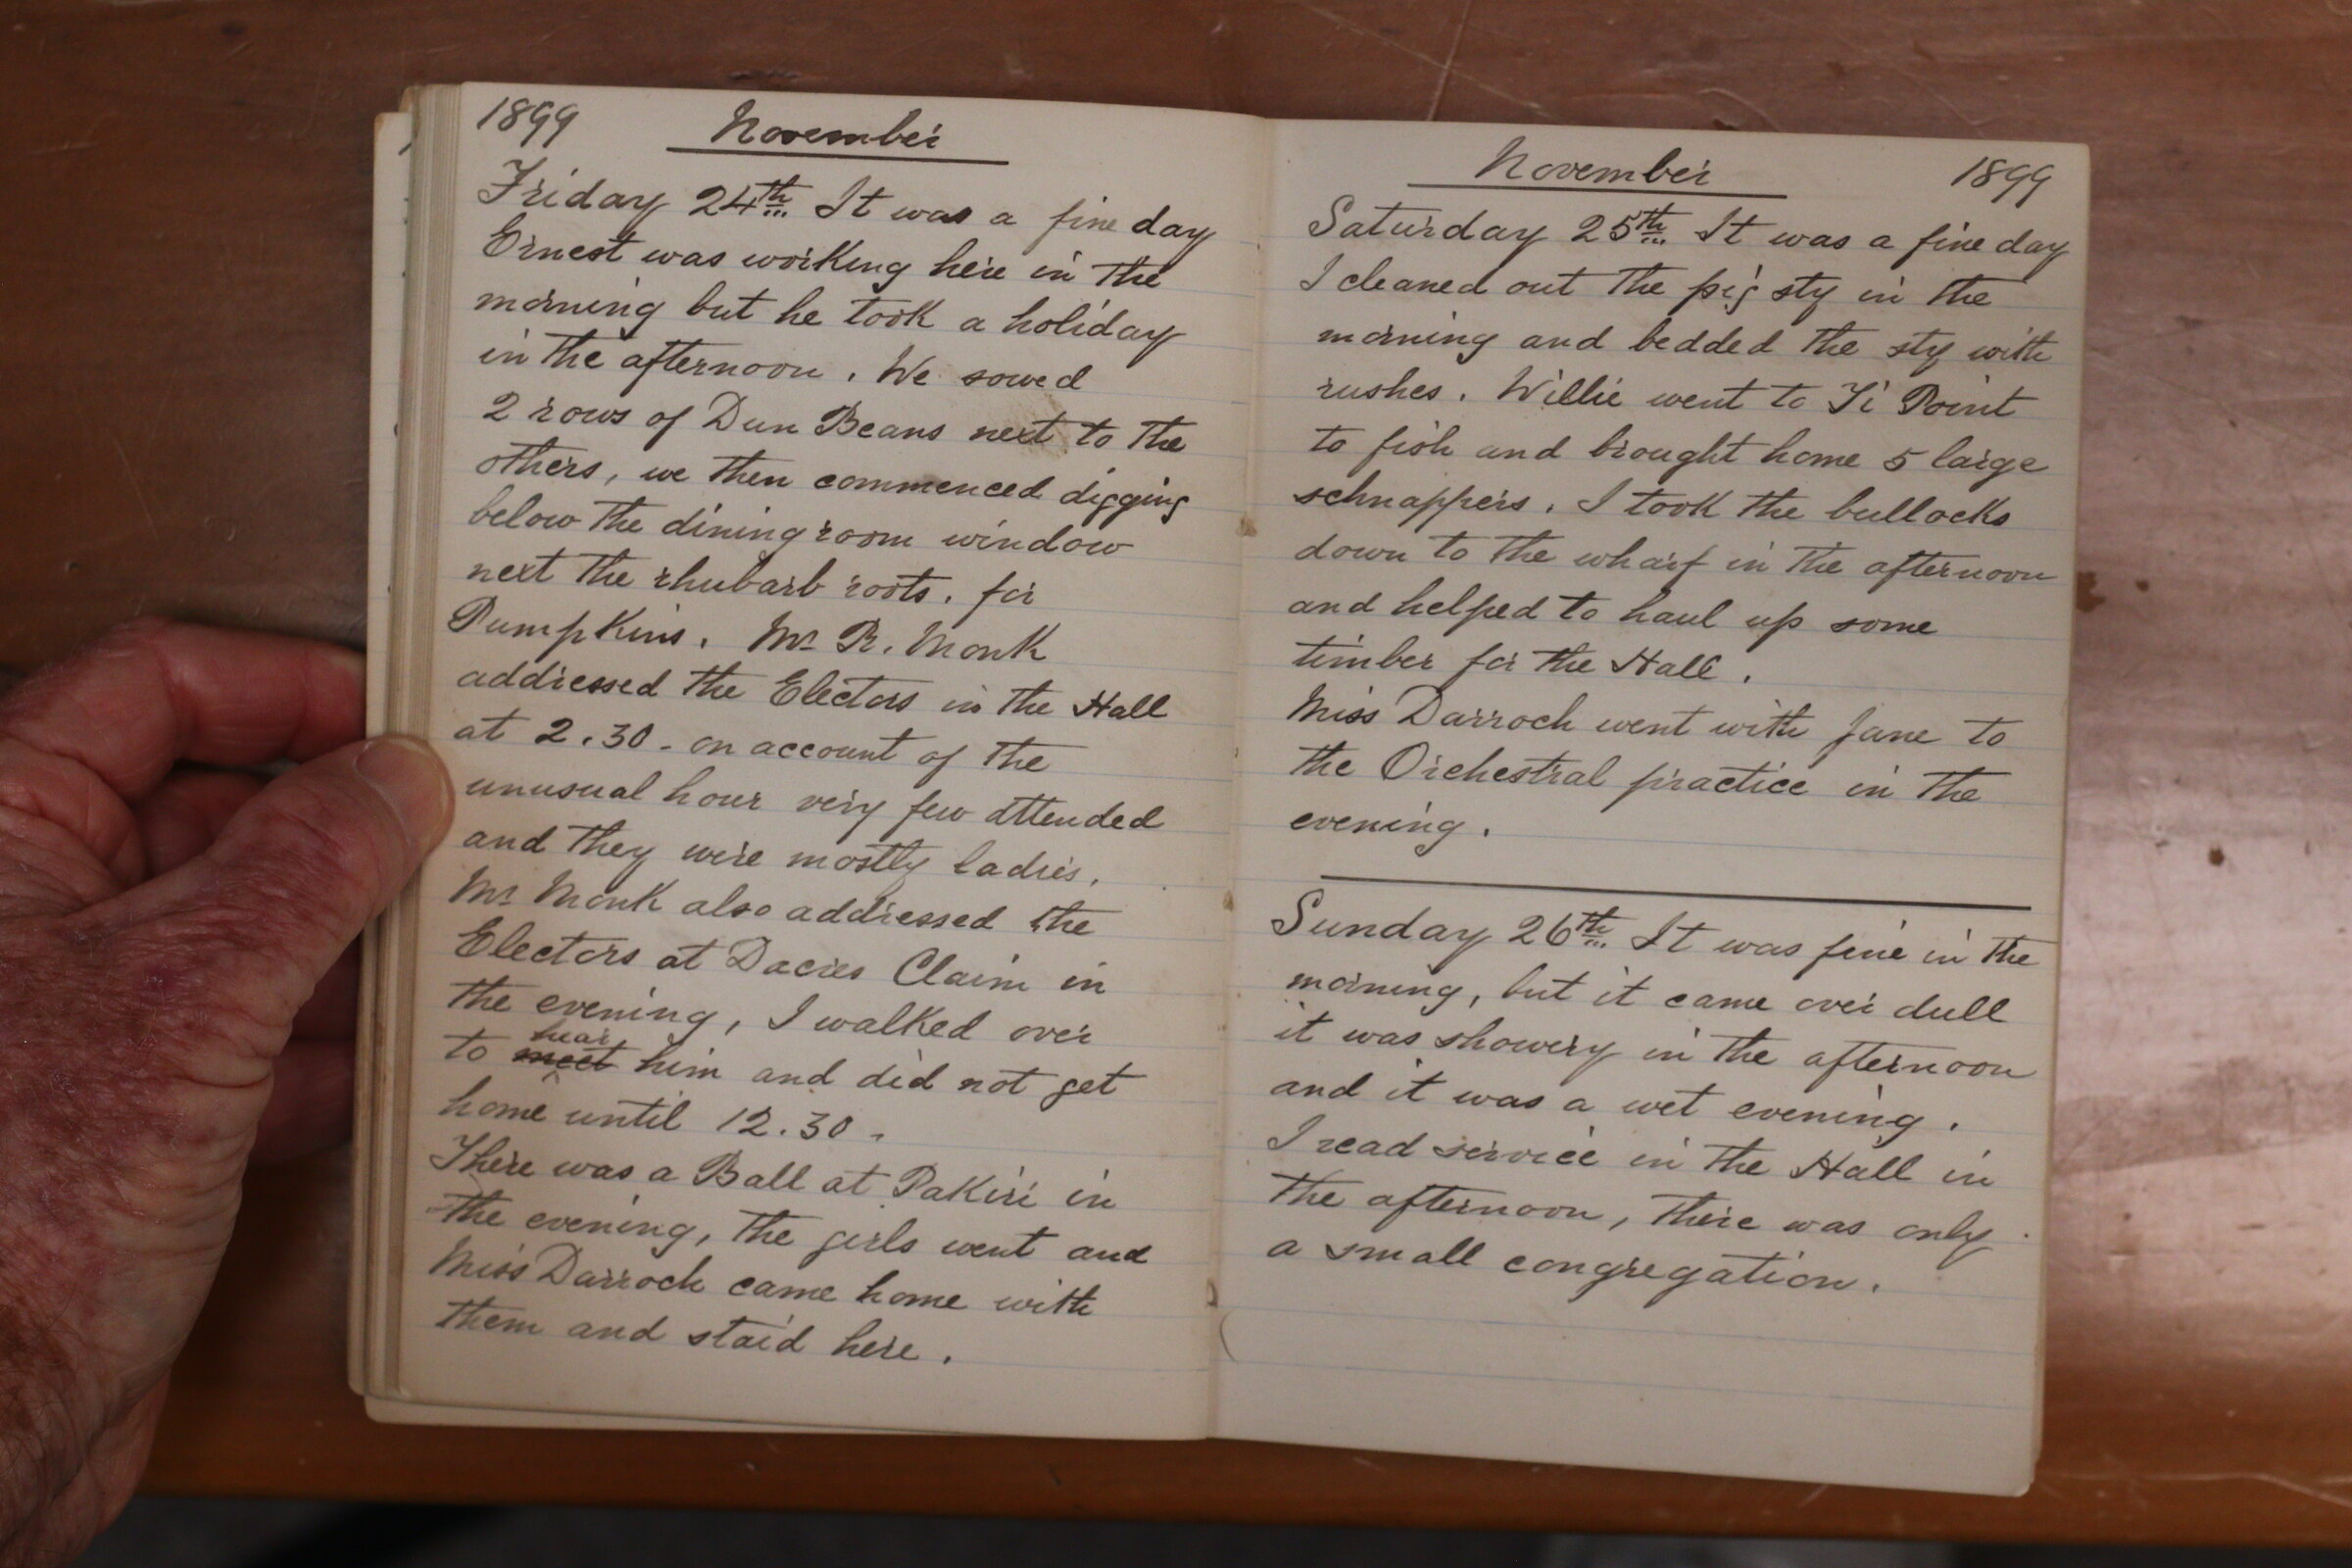 1899 November
Friday 24th It was a fine day
Ernest was working here in the
morning but he took a holiday
in the afternoon. We sowed
2 rows of Dun Beans next to the
others, we then commenced digging
below the dining room window
next the rhubarb roots. for
Pumpkins. Mr R. Monk
addressed the Electors in the Hall
at 2.30 - on account of the
unusual hour very few attended
and they were mostly ladies.
Mr Monk also addressed the
Electors at Dacres Claim in
the evening, I walked over
hear
to meet him and did not get
home until 12.30 -
There was a Ball at Pakiri in
the evening, the girls went and
Miss Darroch came home with
them and staid here.
November 1899
Saturday 25th It was a fine day
I cleaned out the pig sty in the
morning and bedded the sty with
rushes. Willie went to Ti Point
to fish and brought home 5 large
schnappers. I took the bullocks
down to the wharf in the afternoon
and helped to haul up some
timber for the Hall.
Miss Darroch went with Jane to
the Orchestral practice in the
evening.
Sunday 26th It was fine in the
morning, but it came over dull
it was showery in the afternoon
and it was a wet evening.
I read service in the Hall in
the afternoon, there was only
a small congregation.